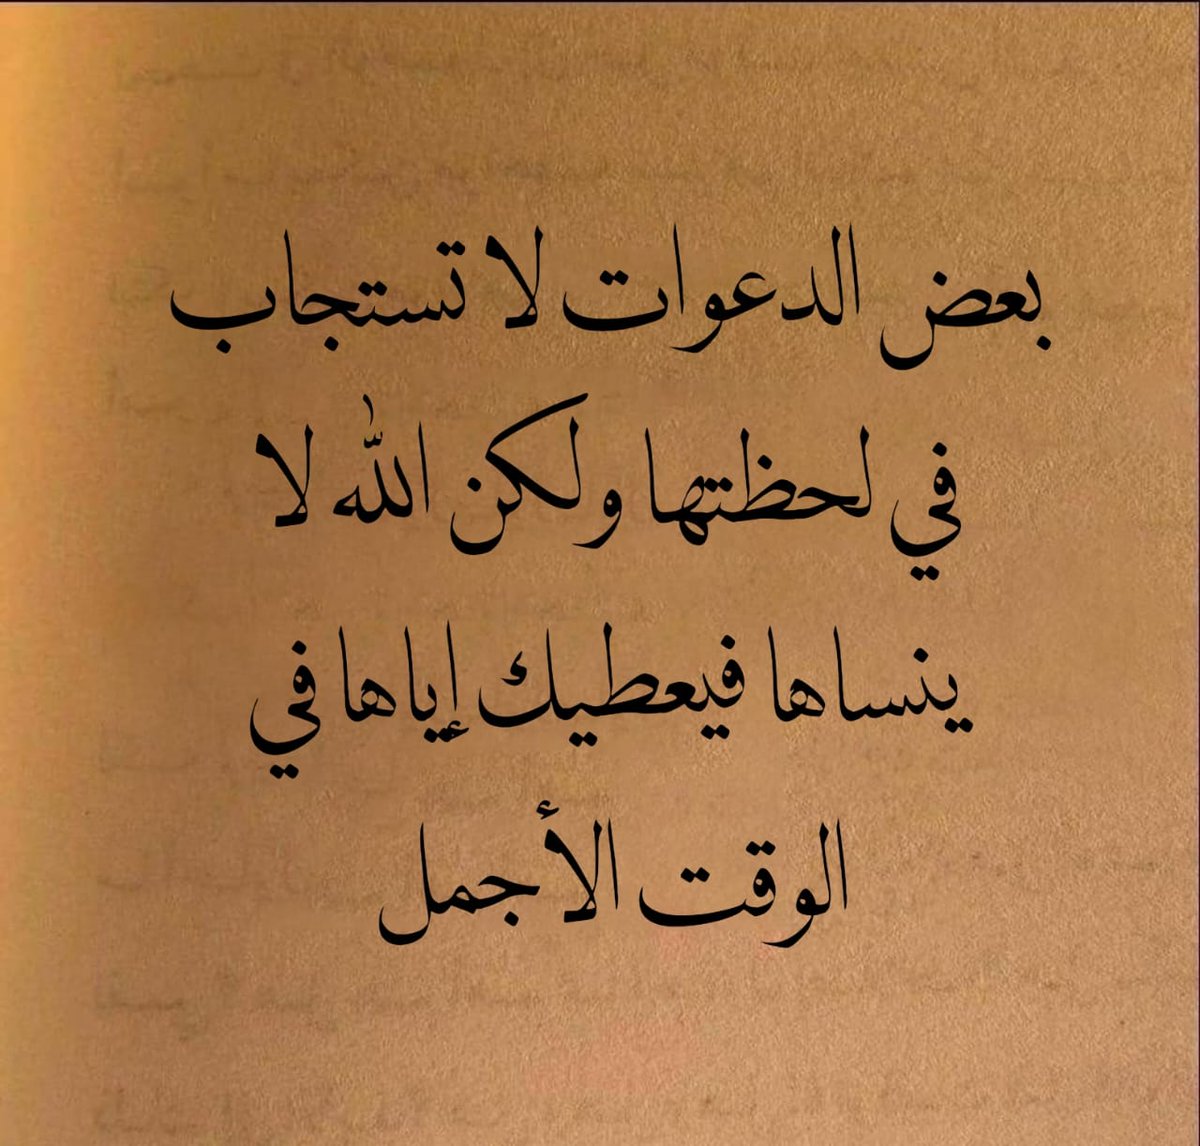 بعض الدعوات لا تستجاب
في لحظتها ولكن الله لا
ينساها فيعطيك إياها في
الوقت الأجمل